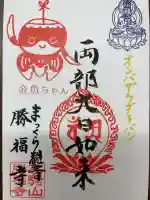 オン バザラ ダト バン
両部大日如来
金魚ちゃん
まっくら観音
勝福寺